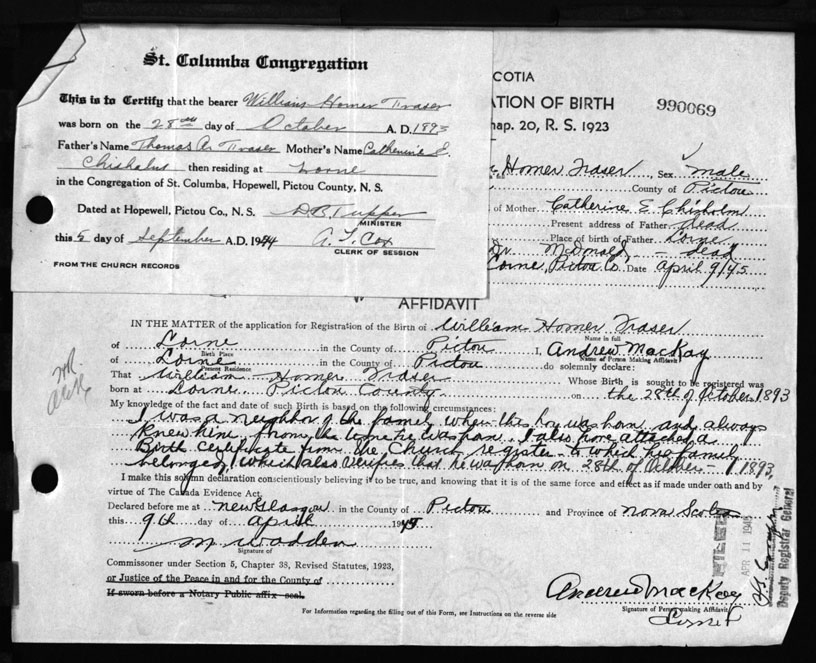 St. Columba Congregation
This is to Certify that the bearer William Homer Fraser
was born on the 28th day of October A. D. 1893
Father's Name Thomas A. Fraser Mother's Name Catherine E.
Chisholm then residing at Lorne
in the Congregation of St. Columba, Hopewell, Pictou County, N. S.
Dated at Hopewell, Pictou Co., N. S. D B Tupper
MINISTER
this 5 day of September A.D. 1944 A. T. Cox
CLERK OF SESSION
FROM THE CHURCH RECORDS
COTIA
ATION OF BIRTH 990069
hap. 20, R. S. 1923
Homer Fraser, Sex male
County of Pictou
of Mother Catherine E Chisholm
Present address of Father dead
Place of birth of Father Lorne
Dr. McDonald — dead
Lorne, Pictou Co. Date April 9/45
AFFIDAVIT
IN THE MATTER of the application for Registration of the Birth of William Homer Fraser
Name in full
of Lorne in the County of Pictou I, Andrew MacKay
Birth Place Name of Person Making Affidavit
of Lorne in the County of Pictou do solemnly declare:
Present Residence
That William Homer Fraser Whose Birth is sought to be registered was
born at Lorne Pictou County on the 28th of October 1893
My knowledge of the fact and date of such Birth is based on the following circumstances:
I was a neighbor of the family when this boy was born and always
knew him from the time he was born. I also have attached a
Birth Certificate from the Church register to which his family
belonged, which also verifies that he was born on 28th of 1893
I make this solemn declaration conscientiously believing it to be true, and knowing that it is of the same force and effect as if made under oath and by
virtue of The Canada Evidence Act.
Declared before me at New Glasgow in the County of Pictou and Province of Nova Scotia
this 9th day of April 1945
M Wadden
Signature of
Commissioner under Section 5, Chapter 38, Revised Statutes, 1923,
or Justice of the Peace in and for the County of
If sworn before a Notary Public affix seal.
Andrew MacKay
Signature of Person making Affidavit
Lorne
For Information regarding the filling out of this Form, see Instructions on the reverse side
FILED
APR 11 1945
Deputy Registrar General